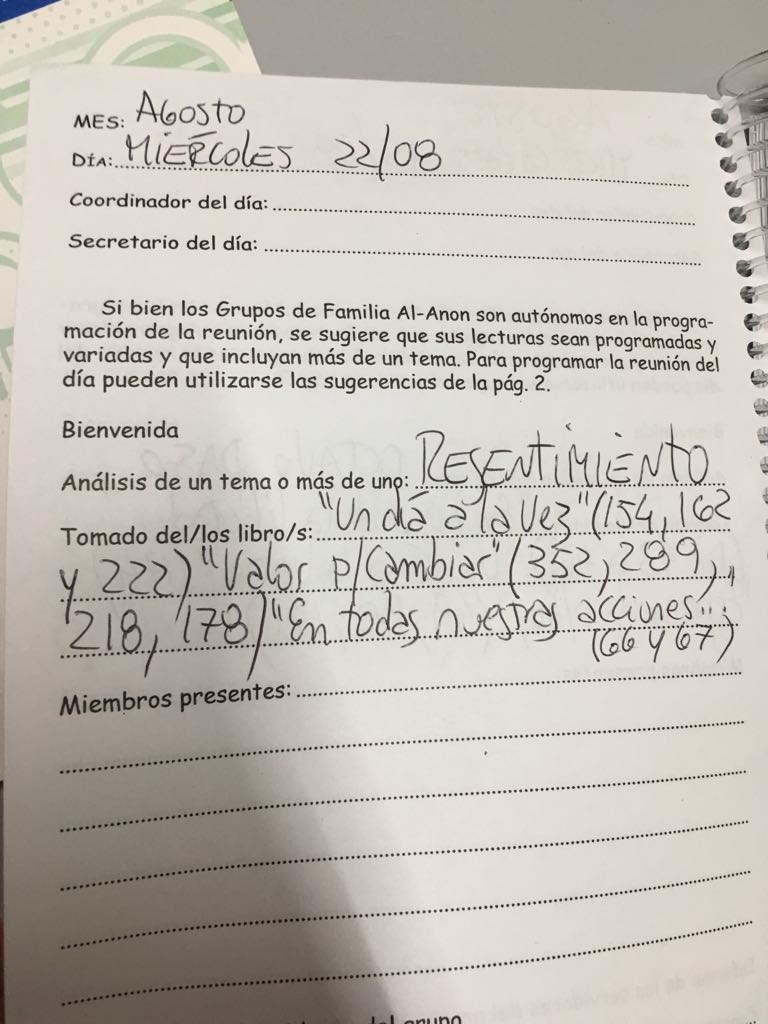 MES: AGOSTO
DÍA: MIÉRCOLES 22/08
Coordinador del día:
Secretario del día:
Si bien los Grupos de Familia Al-Anon son autónomos en la progra-
mación de la reunión, se sugiere que sus lecturas sean programadas y
variadas y que incluyan más de un tema. Para programar la reunión del
día pueden utilizarse las sugerencias de la pág. 2.
Bienvenida
Análisis de un tema o más de uno: RESENTIMIENTO
Tomado del/los libro/s: "Un día a la vez" (154, 162
y 222) "Valor p/Cambiar" (352, 289,
218, 178) "En todas nuestras acciones...
(66 y 67)
Miembros presentes: